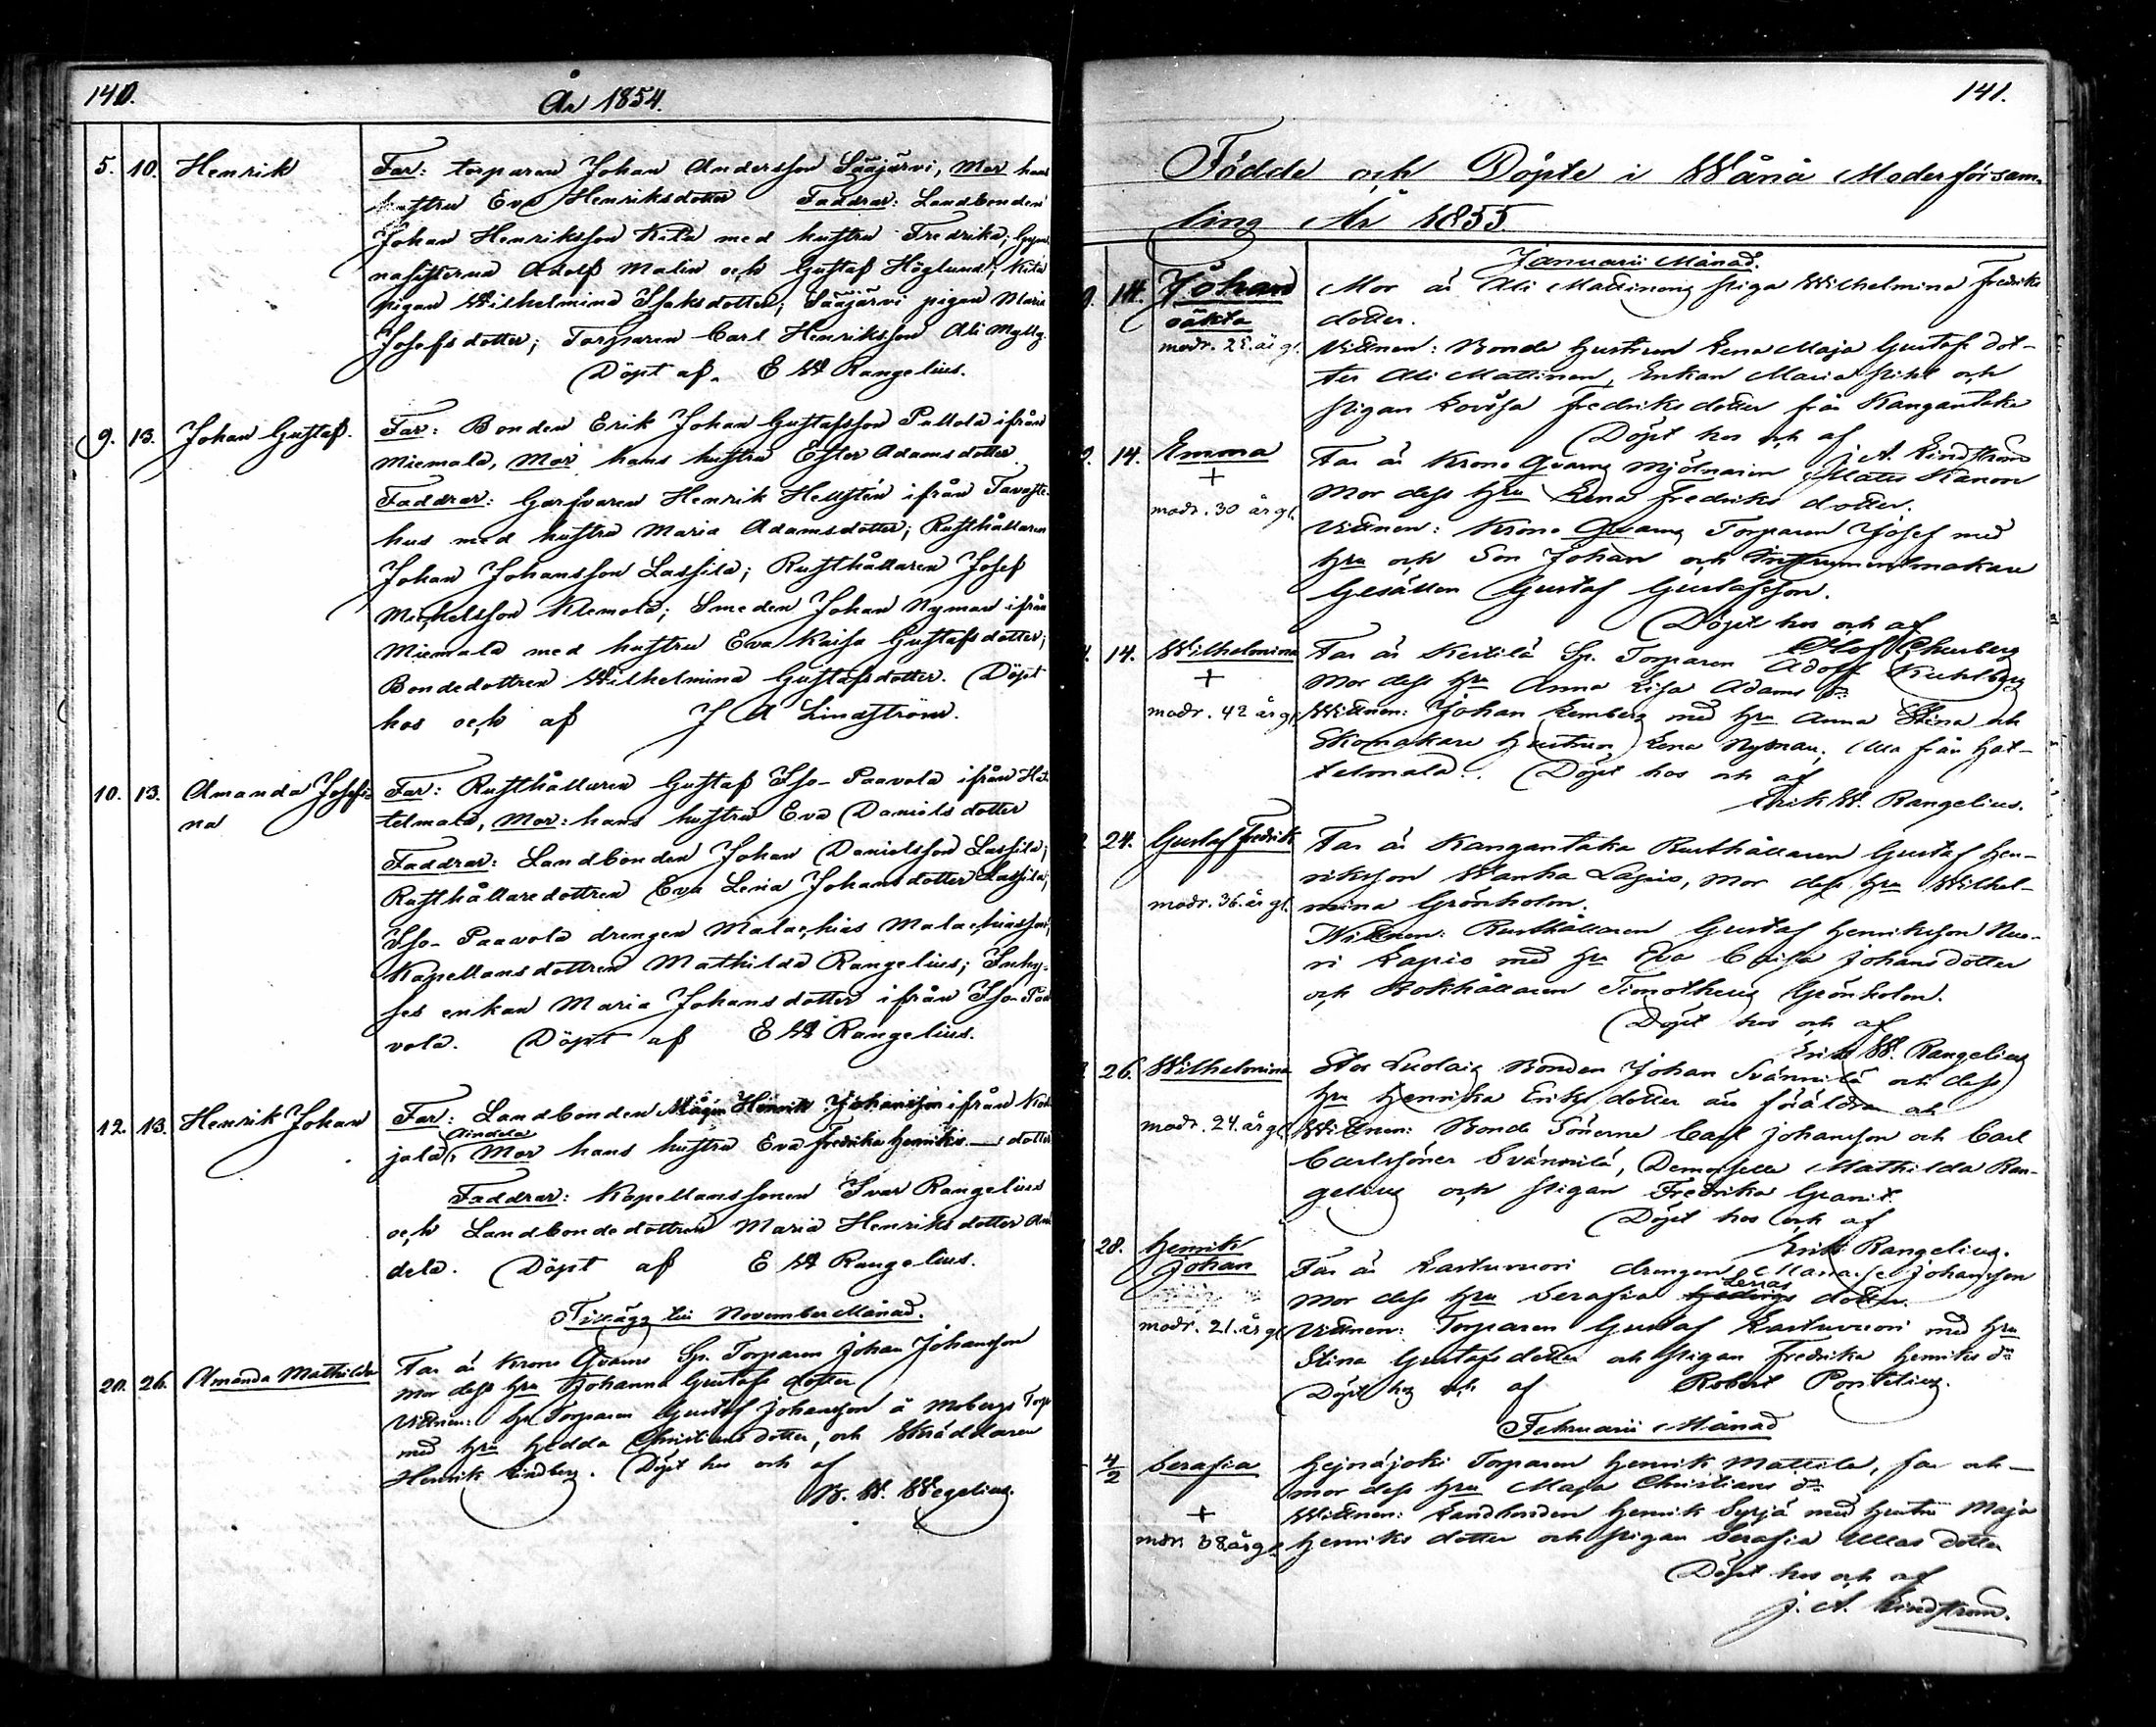 140.
År 1854.
5. 10. Henrik
Far: torparen Johan Andersson Sääjärvi, Mor hans
hustru Eva Henriksdotter Faddrar: Landbonden
Johan Henriksson Kila med hustru Fredrika; Gym-
nasisterna Adolf Malin och Gustaf Höglund; Kila
pigan Wilhelmina Isaksdotter; Sääjärvi pigan Maria
Josefsdotter; Torparen Carl Henriksson Ali
Döpt af. E W Rangelius.
9. 13. Johan Gustaf.
Far: Bonden Erik Johan Gustafsson Pullola ifrån
Miemala, Mor hans hustru Ester Adamsdotter
Faddrar: Garfvaren Henrik Hellstén ifrån Tavaste-
hus med hustru Maria Adamsdotter; Rusthållaren
Johan Johansson Lassila; Rusthållaren Josef
Michelsson Klemola; Smeden Johan Nyman ifrån
Miemala med hustru Eva Kaisa Gustafsdotter;
Bondedottren Wilhelmina Gustafsdotter. Döpt
hos och af J A Lindström.
10. 13. Amanda Josefi-
na
Far: Rusthållaren Gustaf Iso-Paavola ifrån Hä-
telmala, Mor: hans hustru Eva Danielsdotter
Faddrar: Landbonden Johan Danielsson Lassila;
Rusthållaredottren Eva Lena Johansdotter Lassila;
Iso-Paavola drengen Malachias Malachiasson;
Kapellansdottren Mathilda Rangelius; Inhy-
ses enkan Maria Johansdotter ifrån Iso-Paa
vola. Döpt af E W Rangelius.
12. 13. Henrik Johan
Far: Landbonden Mågen Henrik Johansson ifrån
jala Aindela Mor hans hustru Eva Fredrika Henriks dotter
Faddrar: Kapellanssonen Ivar Rangelius
och Landbondedottren Maria Henriksdotter Ain
dela. Döpt af E W Rangelius.
Tillägg till November Månad.
20. 26. Amanda Mathilda
Far är Krono Qvarns Sp. Torparen Johan Johansson
Mor dess hru Johanna Gustafs dotter
Vittnen: Sp Torparen Gustaf Johansson å Mobergs Torp
med hru Hedda Christians dotter, och Skräddaren
Henrik Lindberg. Döpt hos och af
B. W. Wegelius.
141.
Födde och Döpte i Wånå Moderförsam-
ling År 1855
Januarii Månad.
14. Johan
oäkta
modr. år gl.
Mor är Ali Mattinens piga Wilhelmina Fredriks
dotter.
Vittnen: Bonde hustrun Lena Maja Gustafs dot-
ter Ali Mattinen, Enkan Maria och
pigan Lovisa Fredriks dotter från Kangantaka
Döpt hos och af
J. A. Lindström
14. Emma
+
modr. 30 år gl.
Far är Krono Qvarns Mjölnaren Matts Kanon
Mor dess hru Lena Fredriks dotter.
Vittnen: Krono Qvarns Torparen Josef med
hru och Son Johan och Instrumentmakare
Gesällen Gustaf Gustafsson.
Döpt hos och af
Olof
14. Wilhelmina
+
modr. 42 år gl.
Far är Kestilä Sp. Torparen Adolf Kuhlberg
Mor dess hru Anna Lisa Adams dr
Wittnen: Johan Lemberg med hru Anna Stina och
Skomakare hustrun Lena Nyman, alla från Hät-
telmala. Döpt hos och af
Erik W. Rangelius.
24. Gustaf Fredrik
modr. 36. år gl.
Far är Kangantaka Rusthållaren Gustaf Hen-
riksson Wanha Lapio, Mor dess hru Wilhel-
mina Grönholm.
Wittnen: Rusthållaren Gustaf Henriksson Nuo-
ri Lapio med hru Eva Caisa Johansdotter
och Bokhållaren Timotheus Grönholm.
Döpt hos och af
Erik W. Rangelius
26. Wilhelmina
modr. 24. år gl.
Stor Luolais Bonden Johan Svännilä och dess
hru Henrika Eriks dotter äro föräldrar och
Wittnen: Bonde Sönerne Carl Johansson och Carl
Carlssöner Svännilä, Demoiselle Mathilda Ran-
gelius och pigan Fredrika Granit.
Döpt hos och af
Erik Rangelius.
28. Henrik
Johan
modr. 21. år gl
Far är Kastuvuori drengen Manasse Johansson
Mor dess hru Serafia Lenas dotter.
Vittnen: Torparen Gustaf Kastuvuori med hru
Stina Gustafs dotter och pigan Fredrika Henriks dr
Döpt hos och af Robert Pontelius.
Februarii Månad
4/2 Serafia
+
modr. 38 år gl.
Hejnäjoki Torparen Henrik Mattila, far och
mor dess hru Maja Christians dr
Wittnen: Landbonden Henrik Syrjä med hustru Maja
Henriks dotter och pigan Serafia Ullas dotter
Döpt hos och af
J. A. Lindström.